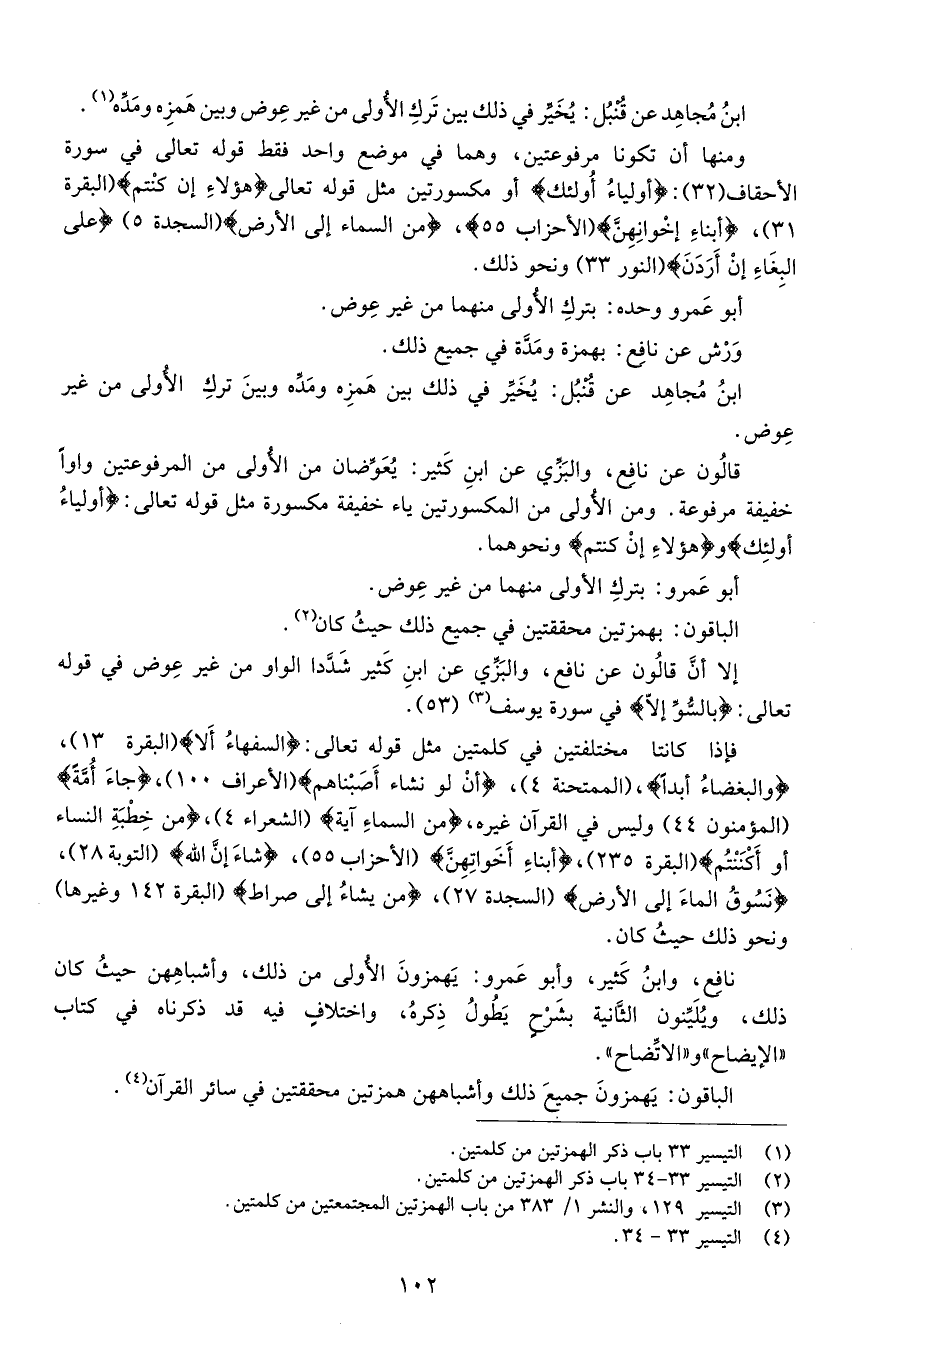 ابنُ مُجاهِد عن قُنْبُل: يُخَيِّر في ذلك بين تَركِ الأُولى من غير عِوض وبين هَمزِه ومَدِّه(١).
ومنها أن تكونا مرفوعتين، وهما في موضع واحد فقط قوله تعالى في سورة
الأحقاف(٣٢): ﴿أولياءُ أُولئك﴾ أو مكسورتين مثل قوله تعالى﴿هؤلاءِ إن كنْتم﴾(البقرة
٣١)، ﴿أبناءِ إخْوانِهِنَّ﴾(الأحزاب ٥٥﴾، ﴿من السماء إلى الأرض﴾(السجدة ٥) ﴿على
البِغَاءِ إنْ أَرَدْنَ﴾(النور ٣٣) ونحو ذلك.
أبو عَمرو وحده: بتركِ الأُولى منهما من غير عِوض.
وَرْش عن نافِع: بهمزة ومَدَّة في جميع ذلك.
ابنُ مُجاهِد عن قُنْبُل: يُخَيِّر في ذلك بين هَمزِه ومَدِّه وبينَ تركِ الأُولى من غير
عِوض.
قالُون عن نافِع، والبَزِّي عن ابنِ كَثير: يُعَوِّضان من الأُولى من المرفوعتين واواً
خفيفة مرفوعة. ومن الأُولى من المكسورتين ياء خفيفة مكسورة مثل قوله تعالى: ﴿أولياءُ
أولئِك﴾و﴿هؤلاءِ إنْ كنتم﴾ ونحوهما.
أبو عَمرو: بتركِ الأولى منهما من غير عِوض.
الباقون: بهمزتين محققتين في جميع ذلك حيثُ كان(٢).
إلا أنَّ قالُون عن نافع، والبَزِّي عن ابنِ كَثير شَدَّدا الواو من غير عِوض في قوله
تعالى: ﴿بالسُّوِّ إلاّ﴾ في سورة يوسف(٣) (٥٣).
فإذا كانتا مختلفتين في كلمتين مثل قوله تعالى: ﴿السفهاءُ أَلا﴾(البقرة ١٣)،
﴿والبغضاءُ أبداً﴾،(الممتحنة ٤)، ﴿أنْ لو نشاء أَصَبْناهم﴾(الأعراف ١٠٠)،﴿جاءَ أُمَّةً﴾
(المؤمنون ٤٤) وليس في القرآن غيره،﴿من السماءِ آية﴾ (الشعراء ٤)،﴿من خِطْبَةِ النساء
أو أَكْنَنْتُم﴾(البقرة ٢٣٥)،﴿أبناءِ أَخَواتِهِنَّ﴾ (الأحزاب٥٥)، ﴿شاءَ إنَّ الله﴾ (التوبة ٢٨)،
﴿نَسُوقُ الماءَ إلى الأرض﴾ (السجدة ٢٧)، ﴿من يشاءُ إلى صراط﴾ (البقرة ١٤٢ وغيرها)
ونحو ذلك حيثُ كان.
نافِع، وابنُ كَثير، وأبو عَمرو: يَهمزونَ الأُولى من ذلك، وأشباهِهن حيثُ كان
ذلك، ويُلَيِّنون الثَّانية بشَرْحٍ يَطُولُ ذِكرهُ، واختلافٍ فيه قد ذكرناه في كتاب
«الإيضاح»و«الاتِّضاح».
الباقون: يَهمزونَ جميعَ ذلك وأشباههن همزتين محققتين في سائر القرآن(٤).
(١) التيسير ٣٣ باب ذكر الهمزتين من كلمتين.
(٢) التيسير ٣٣-٣٤ باب ذكر الهمزتين من كلمتين.
(٣) التيسير ١٢٩، والنشر ١/ ٣٨٣ من باب الهمزتين المجتمعتين من كلمتين.
(٤) التيسير ٣٣ - ٣٤.
١٠٢